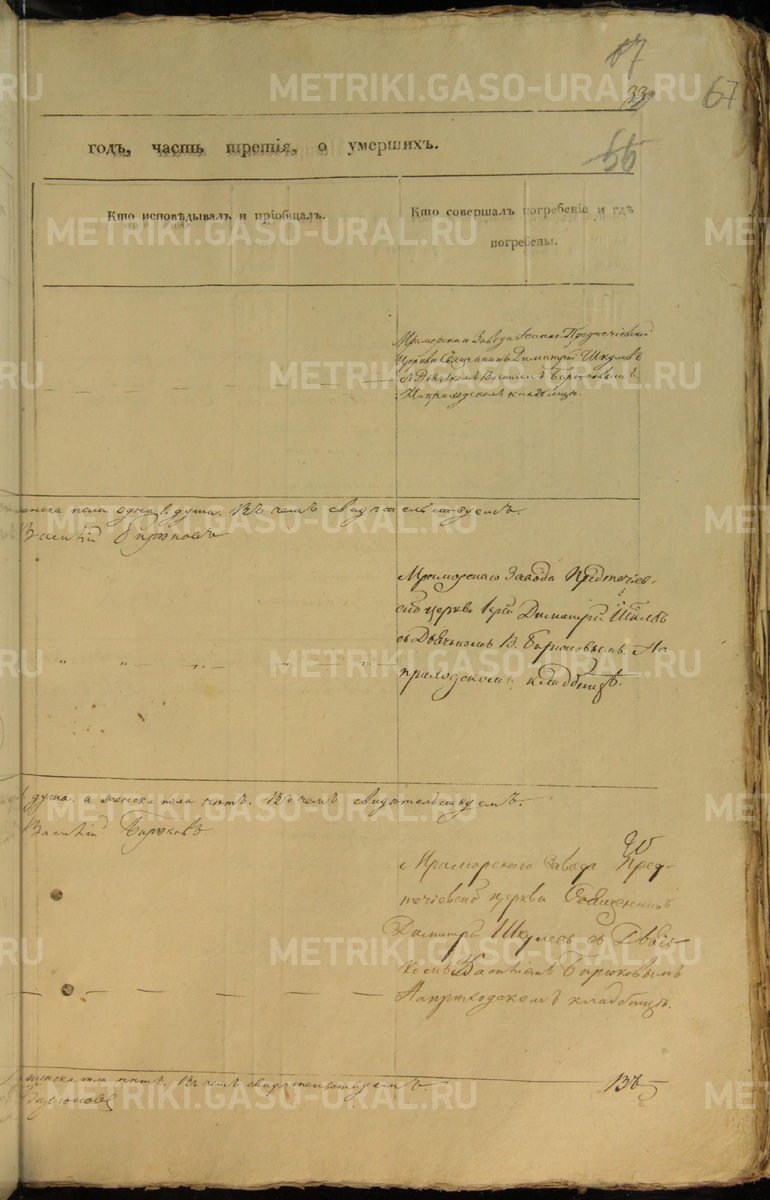 67
33
67
66
годъ, часть третія, о умершихъ.
Кто исповѣдывалъ и пріобщалъ.
Кто совершалъ погребеніе и гдѣ
погребены.
Мраморскаго Завода Іоанно-Предтечіевской
Церкви Священникъ Димитрій Шкулевъ
съ Дьячкомъ Василіемъ Бирюковымъ
На приходскомъ кладбищѣ.
женска пола одна 1. душа. Въ чемъ свидѣтельствуемъ.
Василій Бирюковъ
Мраморскаго Завода Предтечіев-
ской церкви Іерей Димитрій
съ Дьячкомъ В. Бирюковымъ. На
приходскомъ кладбищѣ.
душа. а женска пола нѣтъ. Въ чемъ свидѣтельствуемъ.
Василій Бирюковъ
Мраморскаго Завода Пред-
течіевской церкви Священникъ
Димитрій Шкулевъ съ Дьяч-
комъ Василіемъ Бирюковымъ
На приходскомъ кладбищѣ.
женска пола нѣтъ. Въ чемъ свидѣтельствуемъ
Бирюковъ
METRIKI.GASO-URAL.RU